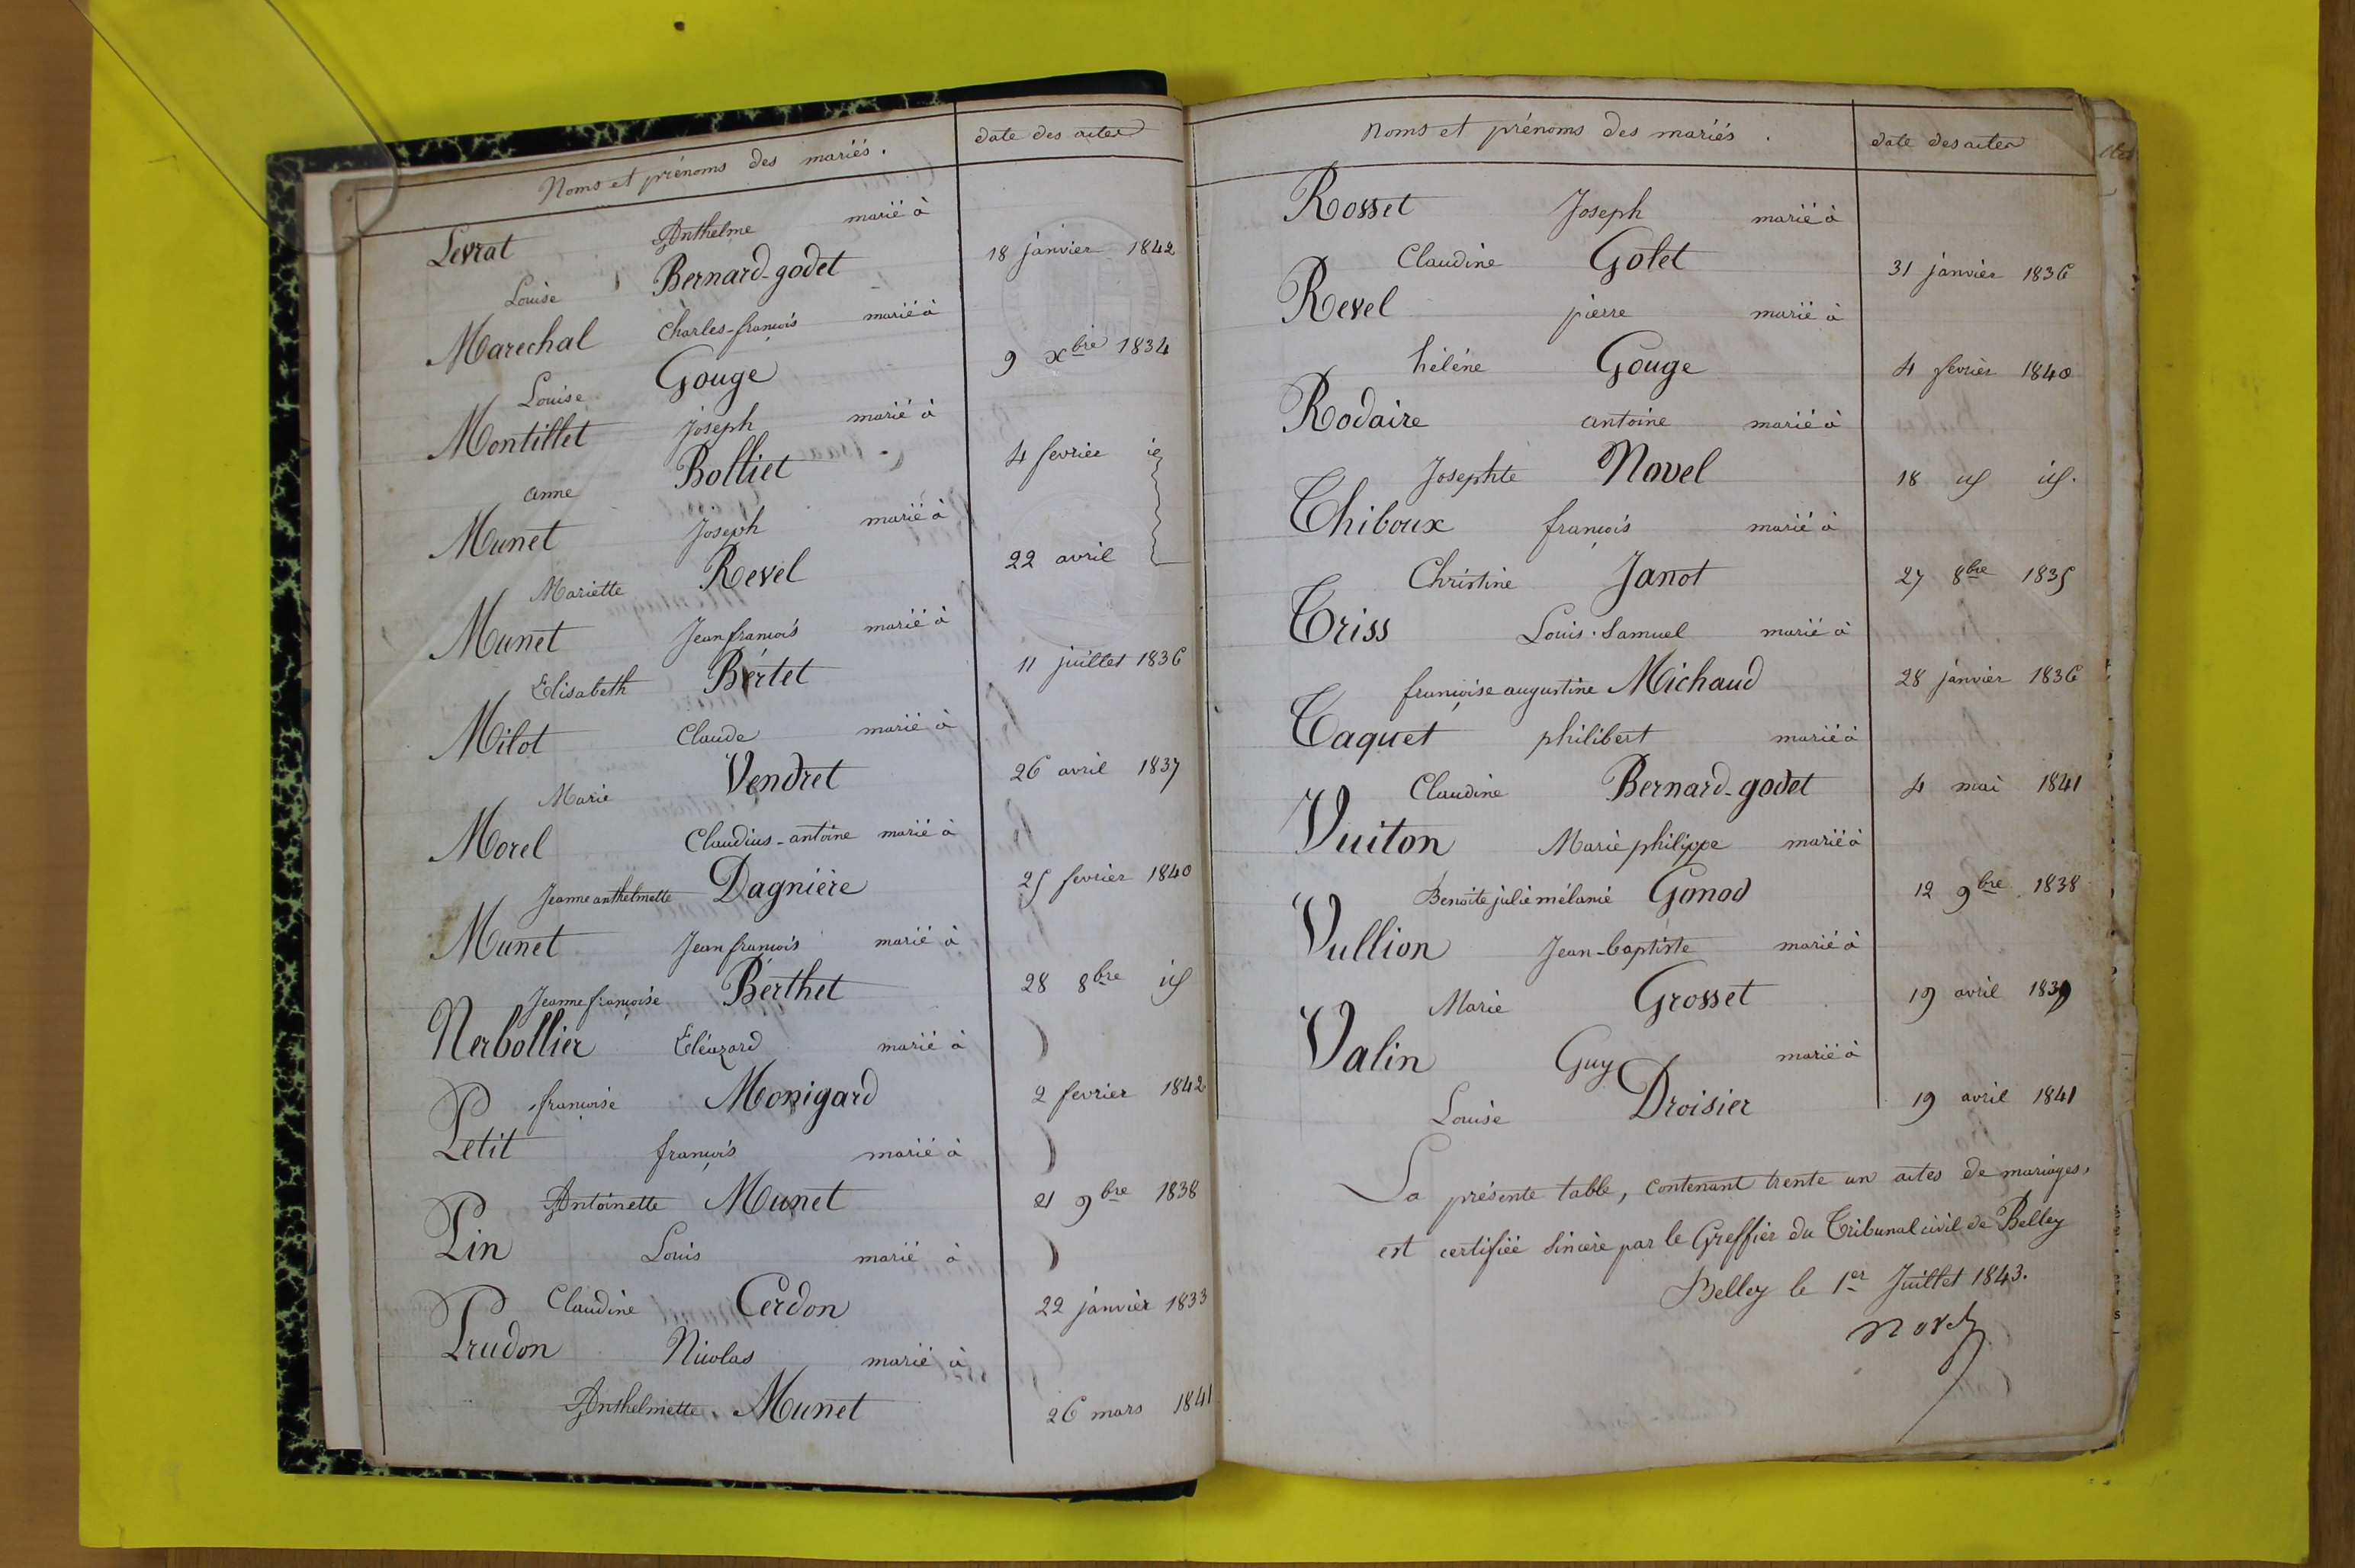 Noms et prénoms des mariés. date des actes
Levrat Anthelme marié à
Louise Bernard-godet 18 janvier 1842
Marechal Charles-françois marié à
Louise Gouge 9 xbre 1834
Montillet Joseph marié à
anne Bolliet 4 fevrier
Munet Joseph marié à
Mariette Revel 22 avril
Munet Jean françois marié à
Elisabeth Bertet 11 juillet 1836
Milot Claude marié à
Marie Vendret 26 avril 1837
Morel Claudius-antoine marié à
Jeanne anthelmette Dagnière 25 fevrier 1840
Munet Jean françois marié à
Jeanne françoise Berthet 28 8bre id
Nerbollier Eléazard marié à
françoise Monigard 2 fevrier 1842
Petit françois marié à
Antoinette Munet 21 9bre 1838
Pin Louis marié à
Claudine Cerdon 22 janvier 1833
Prudon Nicolas marié à
Anthelmette Munet 26 mars 1841
Noms et prénoms des mariés. date des actes
Rosset Joseph marié à
Claudine Golet 31 janvier 1836
Revel pierre marié à
hélène Gouge 4 fevrier 1840
Rodaire antoine marié à
Josephte Novel 18 id id.
Thiboux françois marié à
Christine Janot 27 8bre 1835
Triss Louis-Samuel marié à
françoise augustine Michaud 28 janvier 1836
Taquet philibert marié à
Claudine Bernard-godet 4 mai 1841
Vuiton Marie philippe marié à
Benoite julie mélanie Gonod 12 9bre 1838
Vullion Jean-baptiste marié à
Marie Grosset 19 avril 1839
Valin Guy marié à
Louise Droisier 19 avril 1841
La présente table, contenant trente un actes de mariages,
est certifiée sincère par le Greffier du Tribunal civil de Belley
Belley le 1er Juillet 1843.